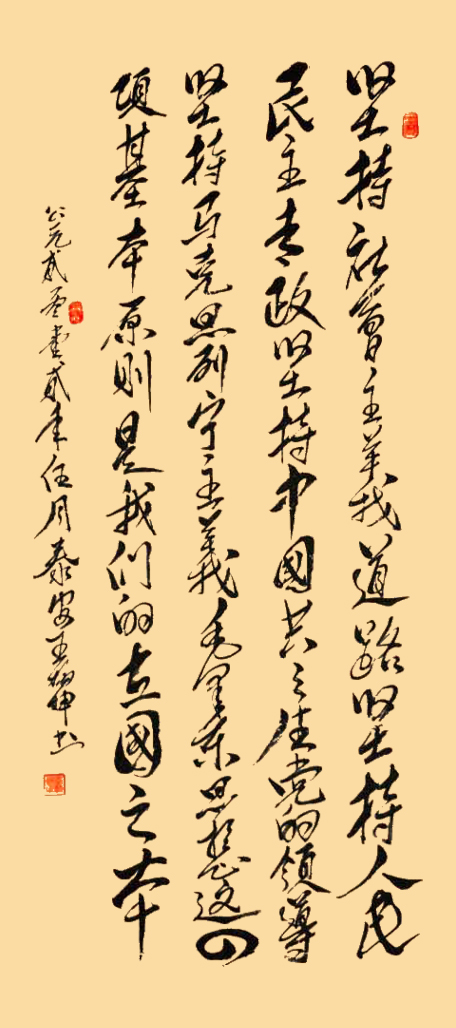 坚持社會主義道路坚持人民
民主专政坚持中國共产党的领導
坚持马克思列宁主義毛泽东思想这四
项基本原则是我们的立國之本
公元贰零壹贰年伍月泰安王书